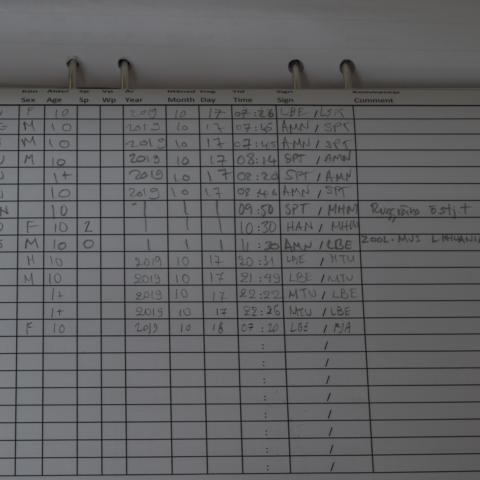 Sex Age Sp Wp Year Month Day Time Sign Comment
F 10 2019 10 17 07:26 LBE /
M 10 2019 10 17 07:45 AMN / SPT
M 10 2019 10 17 07:45 AMN / SPT
M 10 2019 10 17 08:14 SPT / AMN
1+ 2019 10 17 08:20 SPT / AMN
10 2019 10 17 AMN / SPT
10 | | | 09:50 SPT / MHM
F 10 2 | | | 10:30 HAN / MHM
M 10 0 | | | 11:20 AMN / LBE ZOOL. MUS
M 10 2019 10 17 20:31 LBE / MTU
M 10 2019 10 17 21:49 LBE / MTU
1+ 2019 10 17 22:22 MTU / LBE
1+ 2019 10 17 22:26 MTU / LBE
F 10 2019 10 18 07:20 LBE /
: /
: /
: /
: /
: /
: /
: /
: /